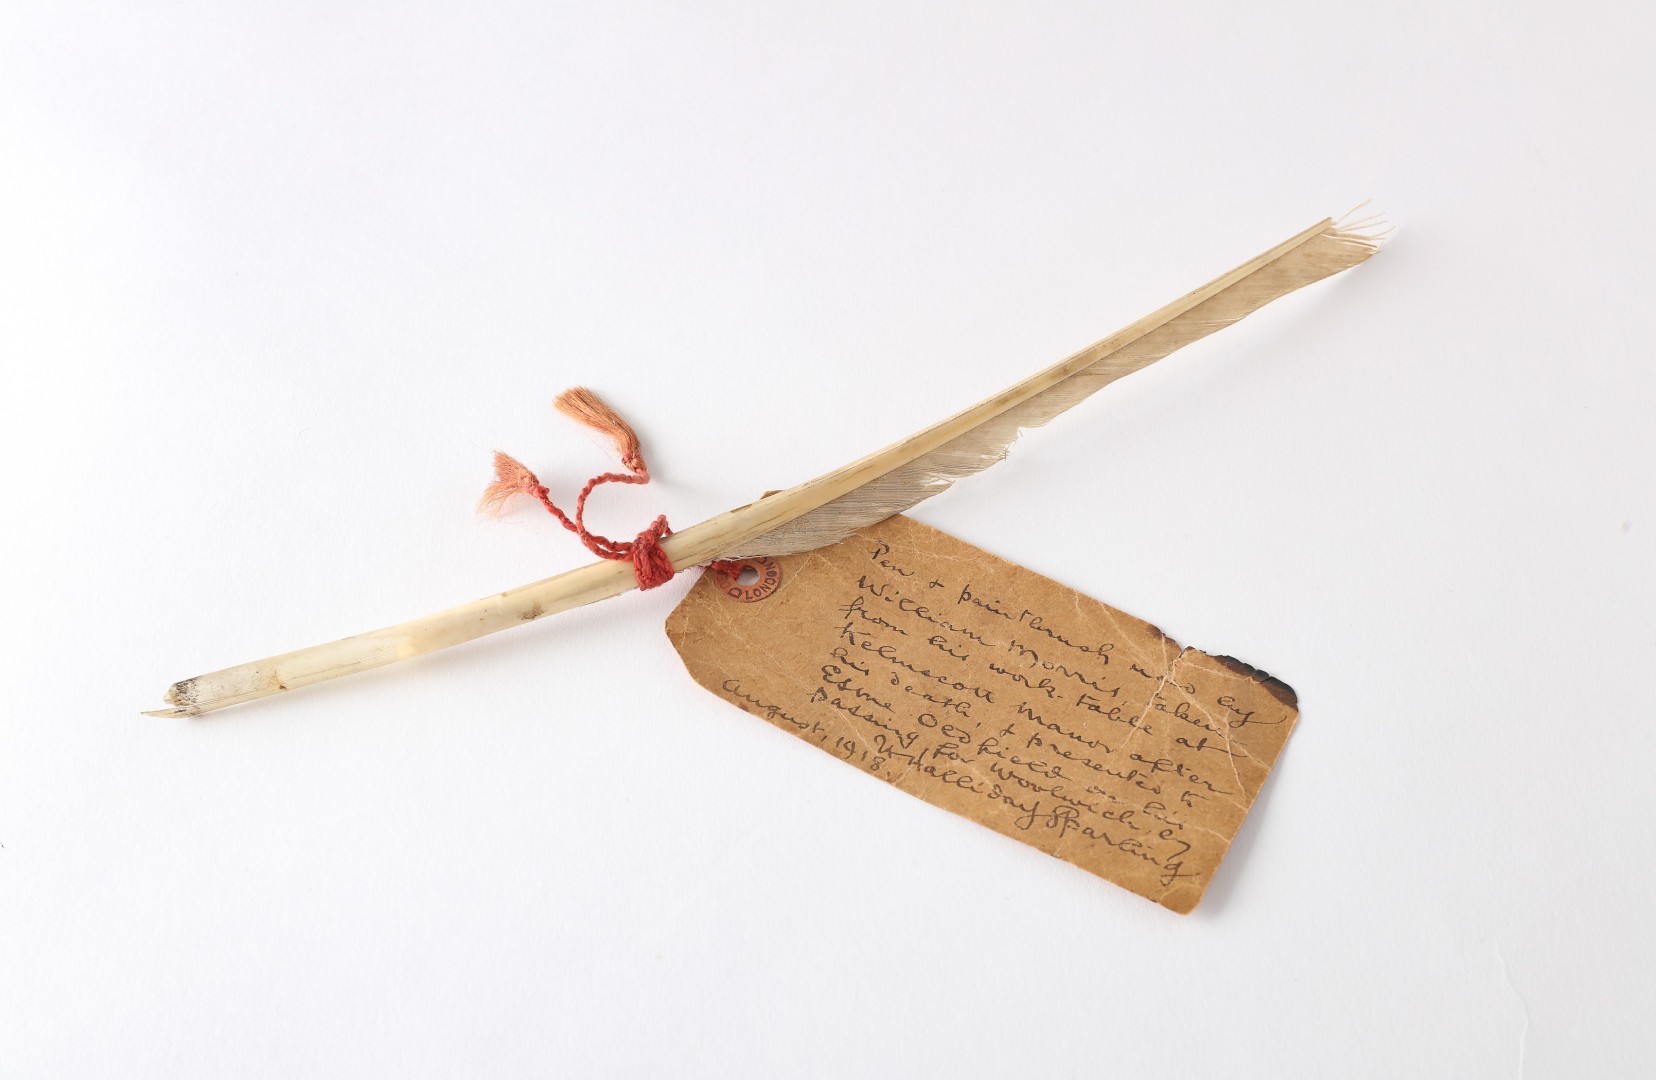 LONDON
Pen & paintbrush used by
William Morris, taken
from his work-table at
Kelmscott Manor after
his death, & presented to
Esme Oedfield on his
passing for Woolwich, by
U Halliday Sparling
August, 1918.